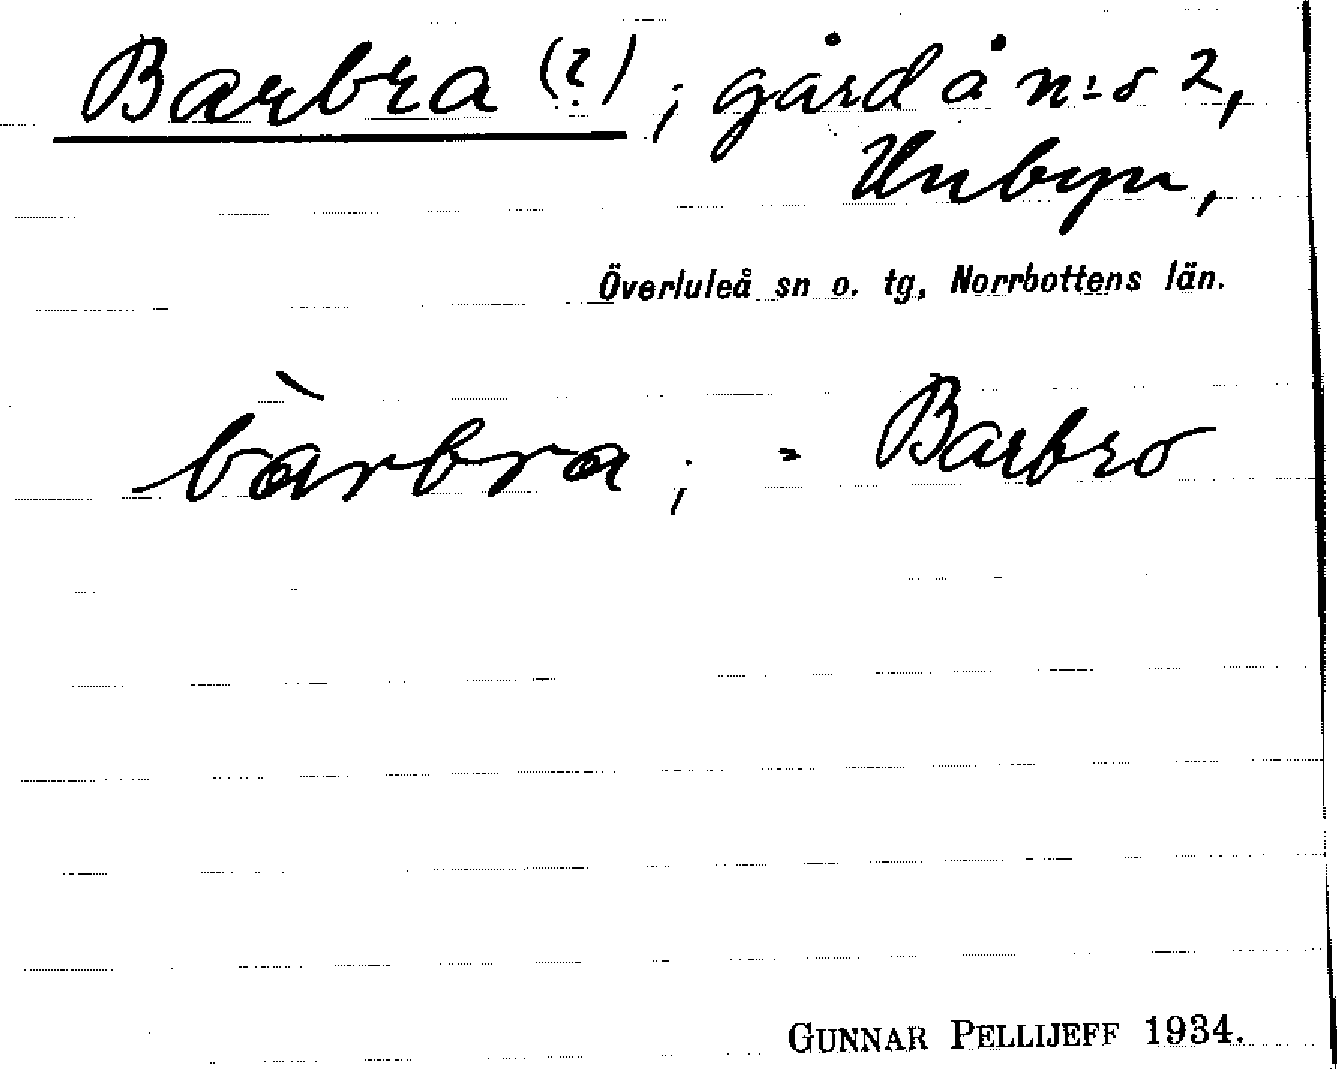 Barbra (?), gård å n:o 2,
Unbyn,
Överluleå sn o. tg, Norrbottens län.
bàrbra; = Barbro
GUNNAR PELLIJEFF 1934.